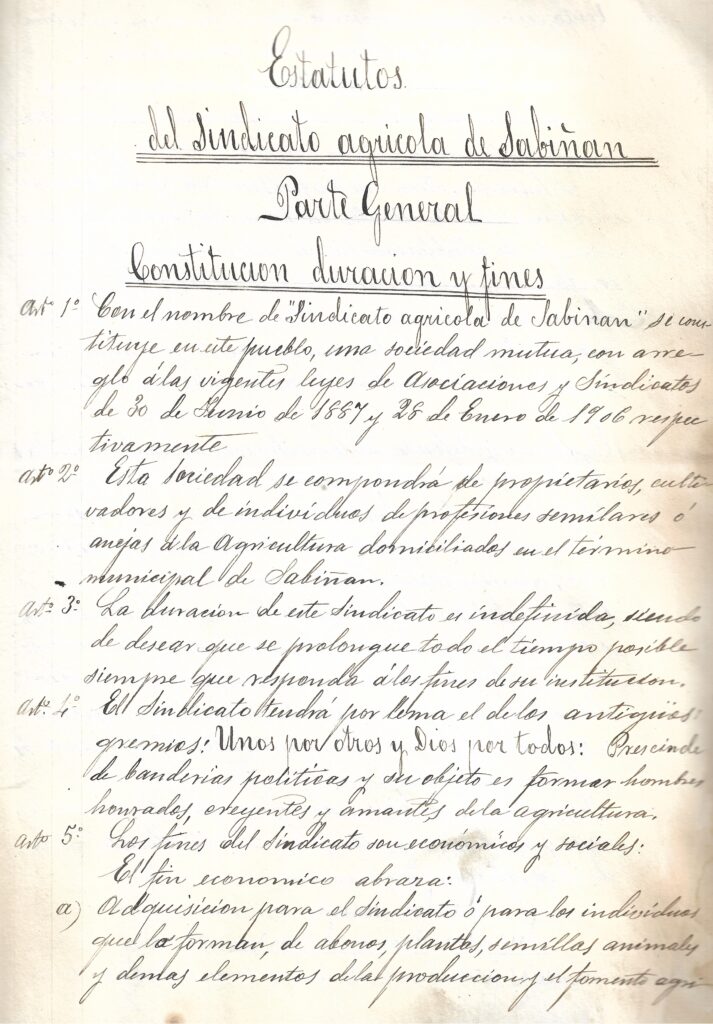 Estatutos
del Sindicato agricola de Sabiñan
Parte General
Constitucion duracion y fines
Artº 1º Con el nombre de "Sindicato agricola de Sabiñan" se cons-
tituye en este pueblo, una sociedad mutua, con arre-
glo á las vigentes leyes de Asociaciones y Sindicatos
de 30 de Junio de 1887 y 28 de Enero de 1906 respec
tivamente
Artº 2º Esta Sociedad se compondrá de propietarios, culti-
vadores y de individuos de profesiones semilares ó
anejas á la Agricultura domiciliados en el término
municipal de Sabiñan.
Artº 3º La duracion de este Sindicato es indefinida, siendo
de desear que se prolongue todo el tiempo posible
siempre que responda á los fines de su institucion.
Artº 4º El Sindicato tendrá por lema el de los antigüos
gremios: Unos por otros y Dios por todos: Prescinde
de banderias politicas y su objeto es formar hombres
honrados, creyentes y amantes de la agricultura.
Artº 5º Los fines del Sindicato son económicos y sociales:
El fin economico abraza:
a) Adquisicion para el Sindicato ó para los individuos
que lo forman, de abonos, plantas, semillas animales
y demas elementos de la produccion y el fomento agri-